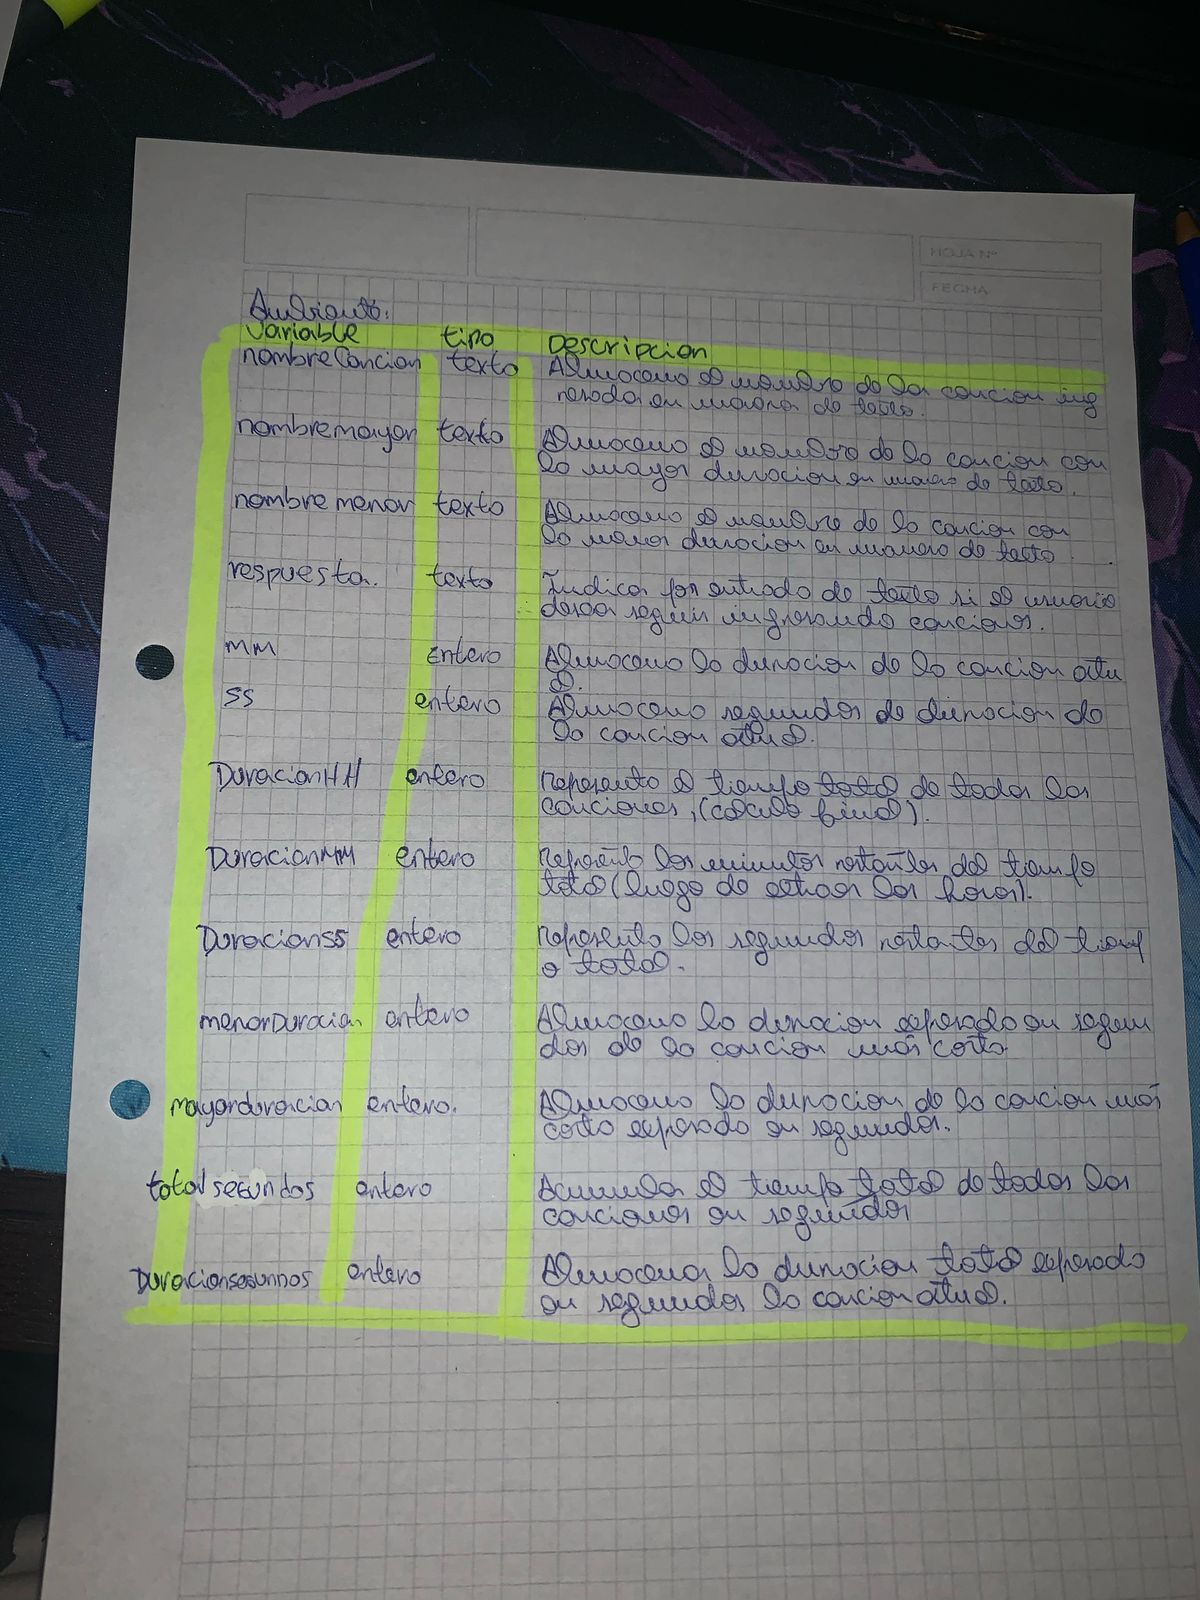 HOJA Nº
FECHA
Ambiente.
Variable tipo Descripcion
nombreCancion texto Almacena el nombre de la cancion ing
resada en manera de texto.
nombremayor texto Almacena el nombre de la cancion con
la mayor duracion en manera de texto.
nombremenor texto Almacena el nombre de la cancion con
la menor duracion en manera de texto.
respuesta. texto Indica por entrada de texto si el usuario
desea seguir ingresando canciones.
MM entero Almacena la duracion de la cancion actu
al.
SS entero Almacena segundos de duracion de
la cancion actual.
DuracionHH entero representa el tiempo total de todas las
canciones, (calculo final).
DuracionMM entero representa los minutos restantes del tiempo
total (luego de extraer las horas).
DuracionSS entero representa los segundos restantes del tiemp
o total.
menorDuracion entero Almacena la duracion expresada en segun
dos de la cancion más corta.
mayorduracion entero. Almacena la duracion de la cancion más
corta expresada en segundos.
totalsegundos entero Acumula el tiempo total de todas las
canciones en segundos
Duracionsegundos entero Almacena la duracion total expresada
en segundos la cancion actual.